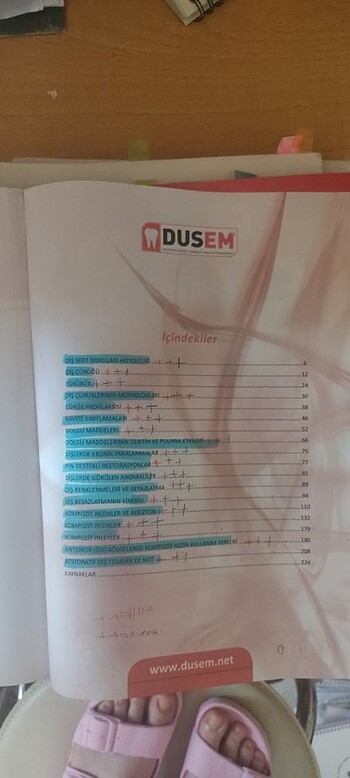 DUSEM
İçindekiler
DİŞ SERT DOKULARI HİSTOLOJİSİ 6
DİŞ ÇÜRÜĞÜ 12
TÜKÜRÜK 24
DİŞ ÇÜRÜKLERİNİN MORFOLOJİLERİ 30
ÇÜRÜK PROFİLAKSİSİ 38
KAVİTE SINIFLAMALARI 46
DOLGU MADDELERİ 52
DOLGU MADDELERİNİN DENTİN VE PULPAYA ETKİLERİ 66
DİŞLERDE KRONİK YARALANMALAR 75
PİN DESTEKLİ RESTORASYONLAR 77
DİŞLERDE GÖRÜLEN ANOMALİLER 81
DİŞ RENKLENMELERİ VE BEYAZLATMA 89
DİŞ BEYAZLATMANIN KİMYASI 94
KOMPOZİT REZİNLER VE ADEZYON 110
KOMPOZİT REZİNLER 132
KOMPOZİT İNLEYLER 179
ANTERİOR (ÖN) BÖLGELERDE KOMPOZİT REZİN KULLANIM YERLERİ 190
RESTORATİF DİŞ TEDAVİSİ EK NOT 208
KAYNAKLAR 224
www.dusem.net